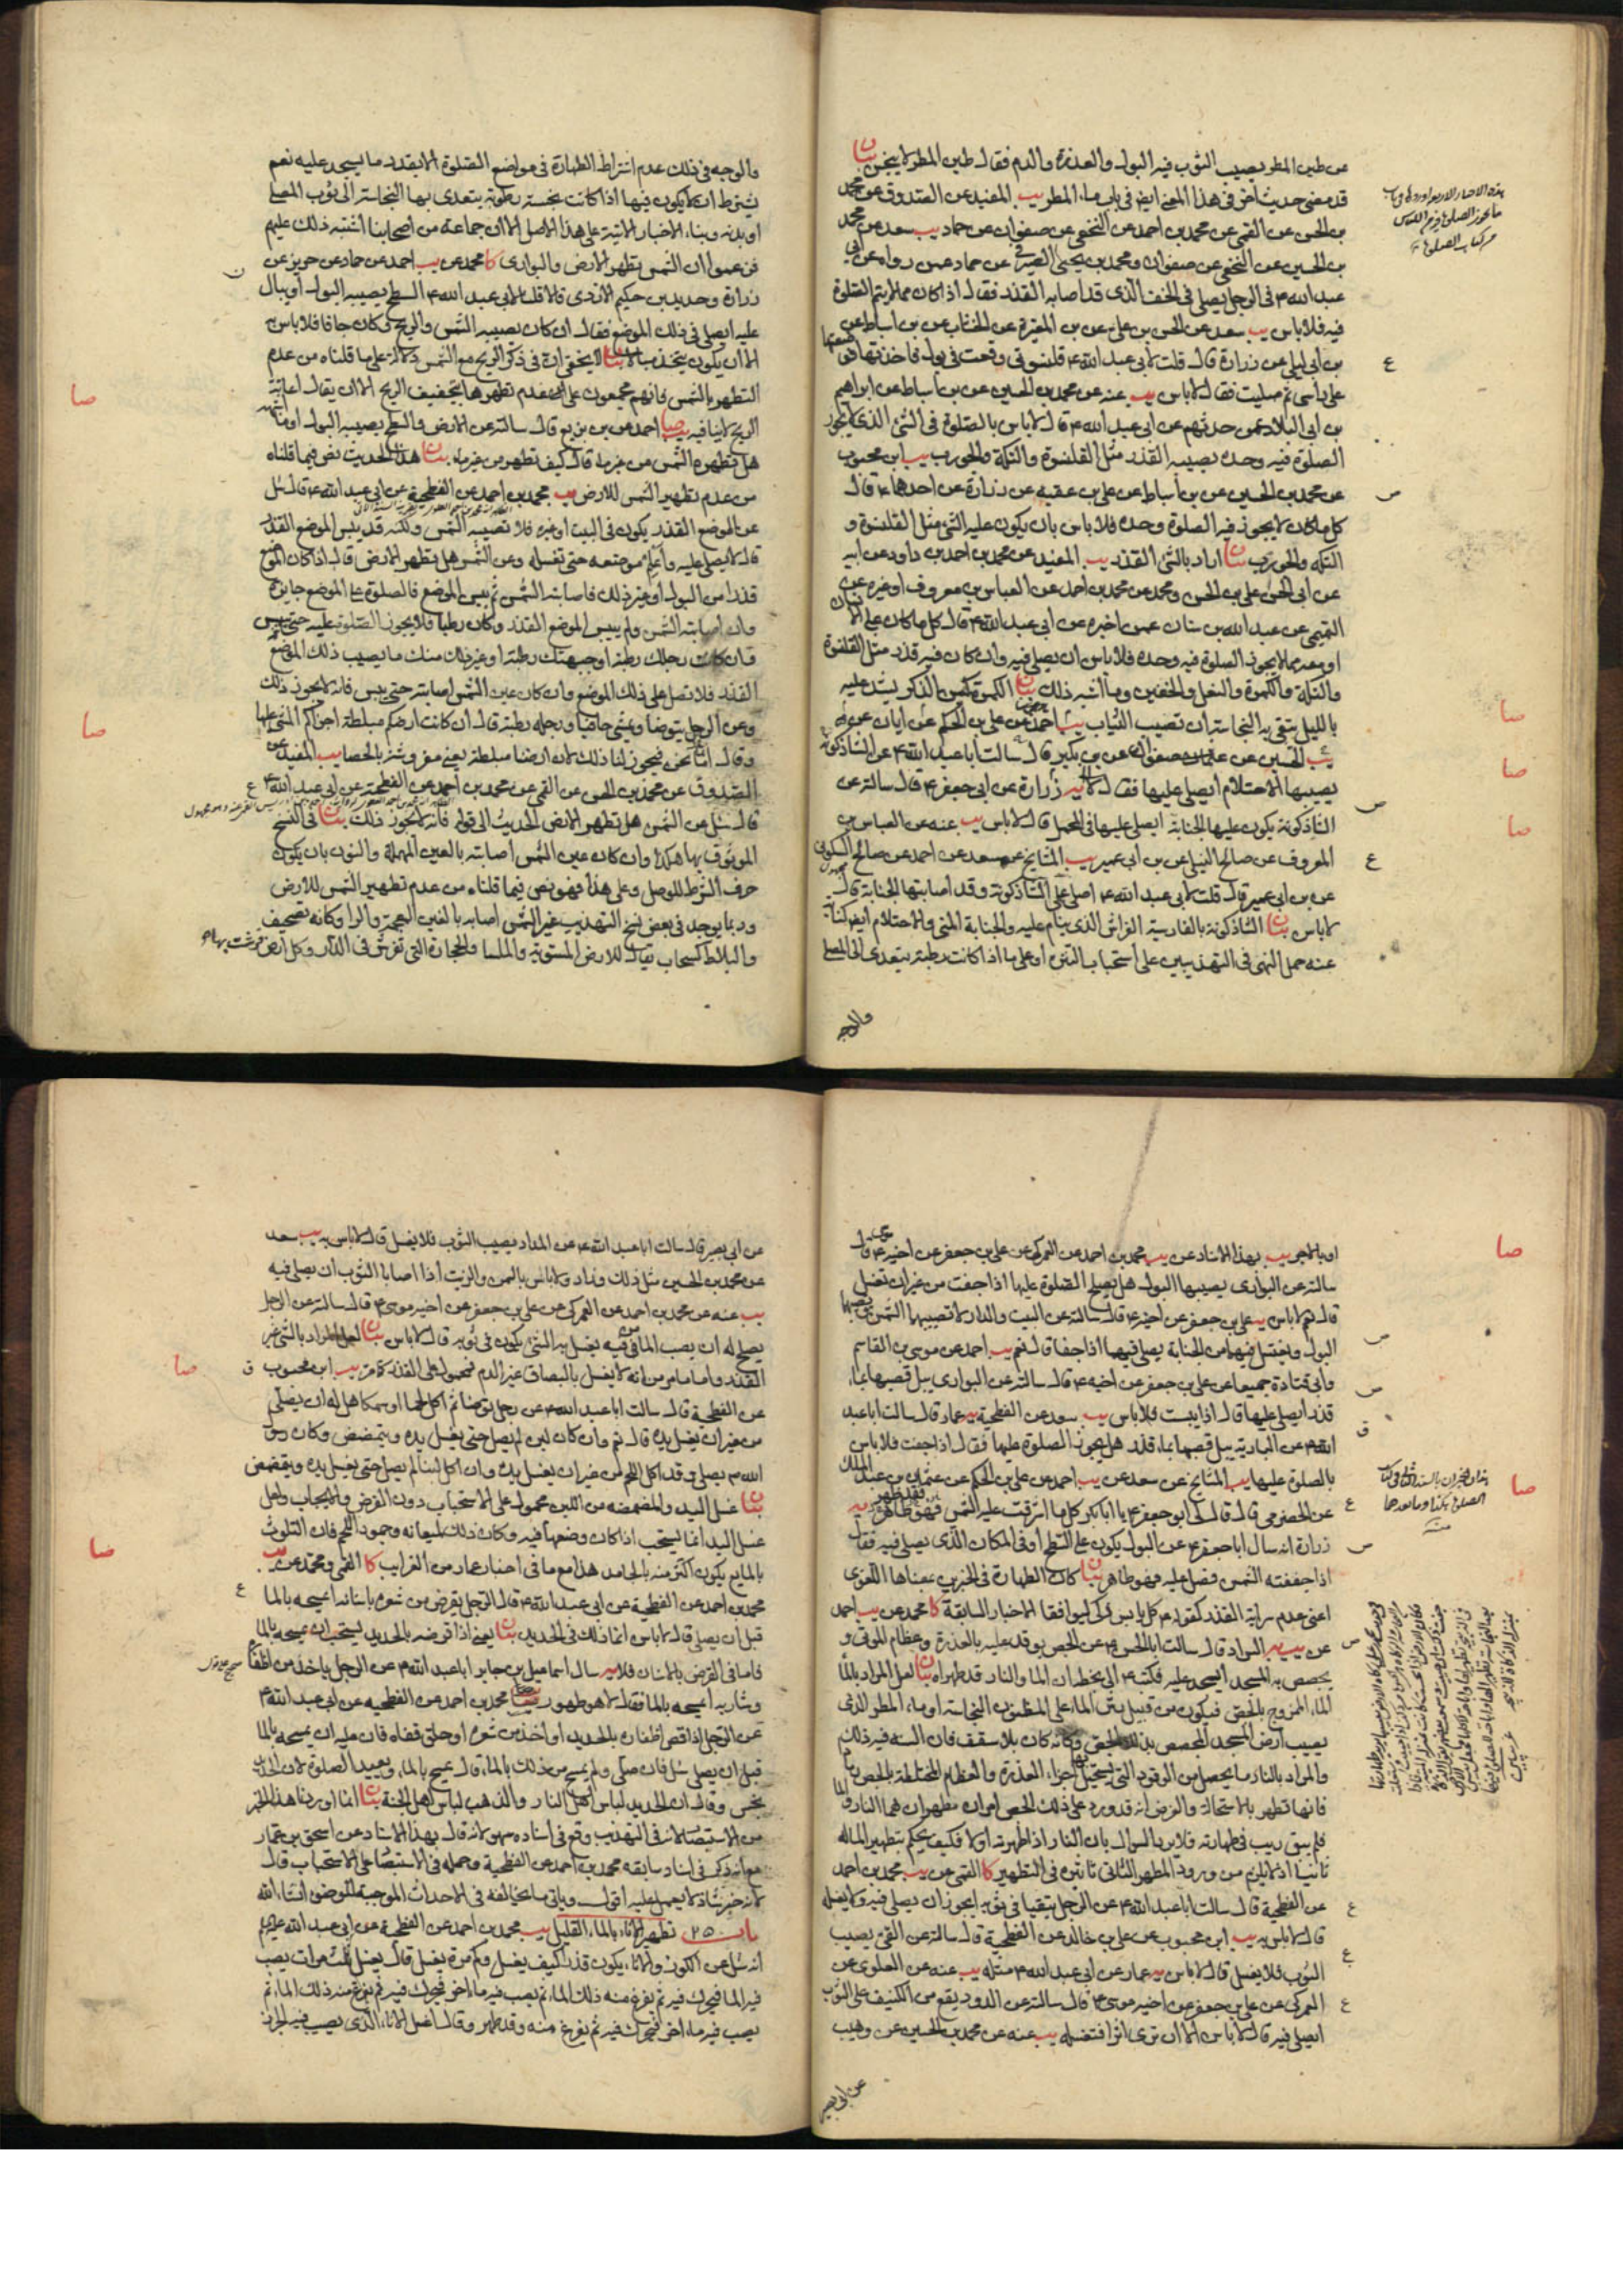 عن طين المطر يصيب الثوب فيه البول والعذرة والدم فقال طين المطر لا ينجس بيان
قد مضى حديث اخر في هذا المعنى ايضا في باب ماء المطر يب المفيد عن الصدوق عن محمد
بن الحسن عن القمي عن محمد بن احمد عن النخعي عن صفوان عن حماد يب سعد عن محمد
بن الحسين عن النخعي عن صفوان ومحمد بن يحيى الصيرفي عن حماد عمن رواه عن ابي
عبد الله ع في الرجل يصلي في الخف الذي قد اصابه القذر فقال اذا كان مما لا يتم الصلوة
فيه فلا باس يب سعد عن الحسن بن علي عن بن المغيرة عن الخشاب عن بن اسباط عن
بن ابي ليلى عن زرارة قال قلت لابي عبد الله ع قلنسوتي وقعت في بول فاخذتها فوضعتها
على راسي ثم صليت فقال لا باس يب عنه عن محمد بن الحسين عن بن اسباط عن ابراهيم
بن ابي البلاد عمن حدثهم عن ابي عبد الله ع قال لا باس بالصلوة في الشئ الذي لا يجوز
الصلوة فيه وحده يصيبه القذر مثل القلنسوة والتكة والجورب يب ابن محبوب
عن محمد بن الحسين عن بن اسباط عن علي بن عقبه عن زرارة عن احدهما ع قال
كل ما كان لا يجوز فيه الصلوة وحده فلا باس بان يكون عليه الشئ مثل القلنسوة و
التكه والجورب بيان اراد بالشئ القذر يب المفيد عن محمد بن احمد بن داود عن ابيه
عن ابي الحسن علي بن الحسين ومحمد عن محمد بن احمد عن العباس بن معروف او غيره عن
التميمي عن عبد الله بن سنان عمن اخبره عن ابي عبد الله ع قال كل ما كان على الانسان
او معه مما لا يجوز الصلوة فيه وحده فلا باس ان يصلي فيه وان كان فيه قذر مثل القلنسوة
والتكة والكمرة والنعل والخفين وما اشبه ذلك بيان الكمرة كيس الذكر يشد عليه
بالليل يتقى به النجاسة ان تصيب الثياب يب احمد عن علي بن الحكم عن ابان عن
يب الحسين عن صفوان عن بن بكير قال سالت ابا عبد الله ع عن الشاذكونة
يصيبها الاحتلام ايصلي عليها فقال لا يه زرارة عن ابي جعفر ع قال سالته عن
الشاذكونة يكون عليها الجنابة ايصلي عليها في المحمل قال لا باس يب عنه عن العباس بن
المعروف عن صالح النيلي عن بن ابي عمير يب المشايخ عن سعد عن احمد عن صالح السكوني
عن بن ابي عمير قال قلت لابي عبد الله ع اصلي على الشاذكونة وقد اصابتها الجنابة قال
لا باس بيان الشاذكونة بالفارسية الفراش الذي ينام عليه والجنابة المني والاحتلام ايضا كناية
عنه حمل النهي في التهذيبين على استحباب التنزه او على ما اذا كانت رطبة يتعدى الى المصلي
والوجه
والوجه في ذلك عدم اشتراط الطهارة في مواضع الصلوة الا بقدر ما يسجد عليه نعم
يشترط ان لا يكون فيها اذا كانت نجسة رطوبة يتعدى بها النجاسة الى ثوب المصلي
او بدنه وبناء الاخبار الاتية على هذا الاصل الا ان جماعة من اصحابنا اشتبه ذلك عليهم
فزعموا ان الشمس تطهر الارض والبواري كا محمد عن يب احمد عن حماد عن حريز عن
زرارة وحديد بن حكيم الازدي قالا قلنا لابي عبد الله ع السطح يصيبه البول او يبال
عليه ايصلي في ذلك الموضع فقال ان كان يصيبه الشمس والريح وكان جافا فلا باس به
الا ان يكون يتخذ مبالا بيان لا يخفى ان في ذكر الريح مع الشمس دلالة على ما قلناه من عدم
التطهر بالشمس فانهم مجمعون على عدم تطهرها بتجفيف الريح الا ان يقال اعانة
الريح لا ينافيه يب صا احمد عن بن بزيع قال سالته عن الارض والسطح يصيبه البول او ما اشبهه
هل تطهره الشمس من غير ماء قال كيف تطهر من غير ماء بيان هذا الحديث نص فيما قلناه
من عدم تطهير الشمس للارض يب محمد بن احمد عن الفطحية عن ابي عبد الله ع قال سئل
عن الموضع القذر يكون في البيت او غيره فلا تصيبه الشمس ولكنه قد يبس الموضع القذر
قال لا يصلى عليه واعلم موضعه حتى تغسله وعن الشمس هل تطهر الارض قال اذا كان الموضع
قذرا من البول او غير ذلك فاصابته الشمس ثم يبس الموضع فالصلوة على الموضع جايزة
وان اصابته الشمس ولم ييبس الموضع القذر وكان رطبا فلا يجوز الصلوة عليه حتى ييبس
وان كانت رجلك رطبة او جبهتك رطبة او غير ذلك منك ما يصيب ذلك الموضع
القذر فلا تصل على ذلك الموضع وان كان عين الشمس اصابته حتى يبس فانه لا يجوز ذلك
وعن الرجل يتوضا ويمشي حافيا ورجله رطبة قال ان كانت ارضكم مبلطة اجزاكم المشي عليها
وقال اما نحن فيجوز لنا ذلك لان ارضنا مبلطة يعني مفروشة بالحصا يب المفيد عن
الصدوق عن محمد بن الحسن عن القمي عن محمد بن احمد عن الفطحية عن ابي عبد الله ع
قال سئل عن الشمس هل تطهر الارض الحديث الى قوله فانه لا يجوز ذلك بيان في النسخ
الموثوق بها هكذا وان كان عين الشمس اصابته بالعين المهملة والنون بان يكون
حرف الشرط للوصل وعلى هذا فهو نص فيما قلناه من عدم تطهير الشمس للارض
وربما يوجد في بعض نسخ التهذيب غير الشمس اصابه بالغين المعجمة والراء وكانه تصحيف
والبلاط كسحاب يقال للارض المستوية والملسا والحجارة التي تفرش في الدار وكل ارض فرشت بها
او بالاجر يب بهذا الاسناد عن يب محمد بن احمد عن العمركي عن علي بن جعفر عن اخيه ع قال
سالته عن البواري يصيبها البول هل يصلح الصلوة عليها اذا جفت من غير ان تغسل
قال نعم لا باس يه علي بن جعفر عن اخيه ع قال سالته عن البيت والدار لا تصيبهما الشمس يصيبهما
البول ويغتسل فيهما من الجنابة يصلى فيهما اذا جفا قال نعم يب احمد عن موسى بن القاسم
وابي قتادة جميعا عن علي بن جعفر عن اخيه ع قال سالته عن البواري يبل قصبها بماء
قذر ايصلى عليها قال اذا يبست فلا باس يب سعد عن الفطحية يه عمار قال سالت ابا عبد
الله ع عن البارية يبل قصبها بماء قذر هل يجوز الصلوة عليها فقال اذا جفت فلا باس
بالصلوة عليها يب المشايخ عن سعد عن يب احمد عن علي بن الحكم عن عثمان بن عبد الملك
عن الحضرمي قال قال لي ابو جعفر ع يا ابا بكر كل ما اشرقت عليه الشمس فهو طاهر يه
زرارة انه سال ابا جعفر ع عن البول يكون على السطح او في المكان الذي يصلى فيه فقال
اذا جففته الشمس فصل عليه فهو طاهر بيان كان الطهارة في الخبرين بمعناها اللغوي
اعني عدم سراية القذر كقوله ع كل يابس ذكي ليوافقا الاخبار السابقة كا محمد عن يب احمد
عن يب يه السراد قال سالت ابا الحسن ع عن الجص يوقد عليه بالعذرة وعظام الموتى و
يجصص به المسجد ايسجد عليه فكتب ع الي بخطه ان الماء والنار قد طهراه بيان لعل المراد بالماء
الماء الممزوج بالجص فيكون من قبيل رش الماء على المظنون النجاسة او ماء المطر الذي
يصيب ارض المسجد المجصص بذلك الجص وكانه كان بلا سقف فان السنة فيه ذلك
والمراد بالنار ما يحصل من الوقود التي تستحيل بها اجزاء العذرة والعظام المختلطة بالجص رمادا
فانها تطهر بالاستحالة والغرض انه قد ورد على ذلك الجص امران مطهران هما النار والماء
فلم يبق ريب في طهارته فلا يرد السؤال بان النار اذا طهرته اولا فكيف يحكم بتطهير الماء له
ثانيا اذ لا يلزم من ورود المطهر الثاني تاثيره في التطهير كا القمي عن يب محمد بن احمد
عن الفطحية قال سالت ابا عبد الله ع عن الرجل يتقيا في ثوبه ايجوز ان يصلي فيه ولا يغسله
قال لا باس به يب ابن محبوب عن علي بن خالد عن الفطحية قال سالته عن القئ يصيب
الثوب فلا يغسل قال لا باس يه عمار عن ابي عبد الله ع مثله يب عنه عن العلوي عن
العمركي عن علي بن جعفر عن اخيه موسى ع قال سالته عن الدود يقع من الكنيف على الثوب
ايصلى فيه قال لا باس الا ان ترى اثرا فتغسله يب عنه عن محمد بن الحسين عن وهيب
عن ابي بصير
عن ابي بصير قال سالت ابا عبد الله ع عن المداد يصيب الثوب فلا يغسل قال لا باس به يب سعد
عن محمد بن الحسين مثل ذلك وزاد ولا باس بالسمن والزيت اذا اصابا الثوب ان يصلى فيه
يب عنه عن محمد بن احمد عن العمركي عن علي بن جعفر عن اخيه موسى ع قال سالته عن الرجل
يصلح له ان يصب الماء من فيه يغسل به الشئ يكون في ثوبه قال لا باس بيان لعل المراد بالشئ غير
القذر واما ما مر من انه لا يغسل بالبصاق غير الدم فمحمول على القذر كما مر يب ابن محبوب
عن الفطحية قال سالت ابا عبد الله ع عن رجل توضا ثم اكل لحما او سمكا هل له ان يصلي
من غير ان يغسل يده قال نعم وان كان لبن لم يصل حتى يغسل يده ويتمضمض وكان رسول
الله ص يصلي وقد اكل اللحم من غير ان يغسل يده وان اكل لبنا لم يصل حتى يغسل يده ويتمضمض
بيان غسل اليد والمضمضه من اللبن محمول على الاستحباب دون الفرض والايجاب ولعل
غسل اليد انما يستحب اذا كان وضعها فيه وكان ذلك لميعانه وجمود اللحم فان التلوث
بالمايع يكون اكثر منه بالجامد هذا مع ما في اخبار عمار من الغرايب كا القمي ومحمد عن يب
محمد بن احمد عن الفطحية عن ابي عبد الله ع قال الرجل يقرض من شعره باسنانه ايمسحه بالماء
قبل ان يصلي قال لا باس انما ذلك في الحديد بيان يعني اذا قرضه بالحديد يستحب ان يمسحه بالماء
فاما في القرض بالاسنان فلا يه سال اسماعيل بن جابر ابا عبد الله ع عن الرجل ياخذ من اظفاره
وشاربه ايمسحه بالماء فقال لا هو طهور يب صا محمد بن احمد عن الفطحيه عن ابي عبد الله ع
عن الرجل اذا قص اظفاره بالحديد او اخذ من شعره او حلق قفاه فان عليه ان يمسحه بالماء
قبل ان يصلي سئل فان صلى ولم يمسح من ذلك بالماء قال يمسح بالماء ويعيد الصلوة لان الحديد
نجس وقال ان الحديد لباس اهل النار والذهب لباس اهل الجنة بيان انما اوردنا هذا الخبر
من الاستبصار لانه في التهذيب وقع في اسناده سهو لانه قال بهذا الاسناد عن اسحق بن عمار
مع انه ذكر في اسناد سابقه محمد بن احمد عن الفطحية وحمله في الاستبصار على الاستحباب قال
لانه خبر شاذ لا يعمل عليه اقول وياتي ما يخالفه في الاحداث الموجبة للوضوء انشاء الله
باب ٢٥ تطهير الاناء بالماء القليل يب محمد بن احمد عن الفطحية عن ابي عبد الله عليهم
انه سئل عن الكوز والاناء يكون قذرا كيف يغسل وكم مرة يغسل قال يغسل ثلث مرات يصب
فيه الماء فيحرك فيه ثم يفرغ منه ذلك الماء ثم يصب فيه ماء اخر فيحرك فيه ثم يفرغ منه ذلك الماء ثم
يصب فيه ماء اخر فيحرك فيه ثم يفرغ منه وقد طهر وقال اغسل الاناء الذي يصيب فيه الجرذ
صا
صا
صا
صا
صا
صا
صا
صا
صا